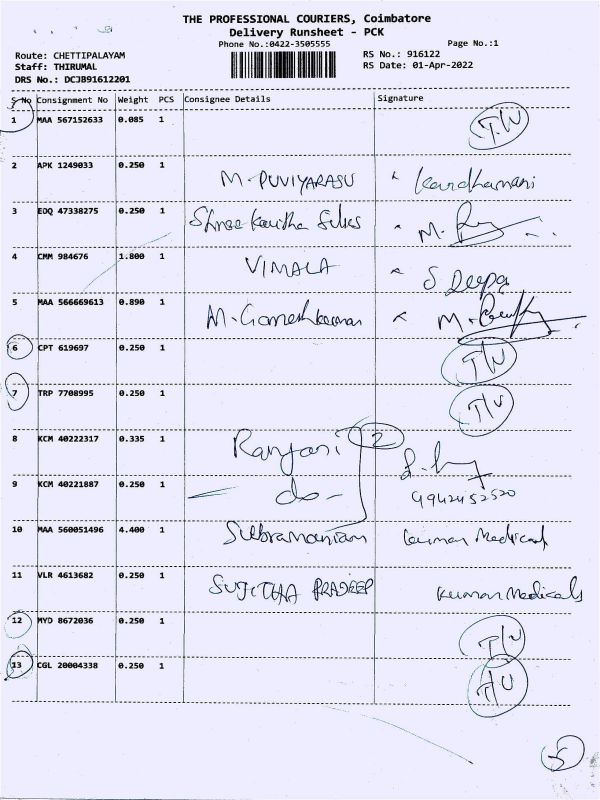 THE PROFESSIONAL COURIERS, Coimbatore
Delivery Runsheet - PCK
Phone No.:0422-3505555
Page No.:1
Route: CHETTIPALAYAM
Staff: THIRUMAL
DRS No.: DCJB91612201
RS No.: 916122
RS Date: 01-Apr-2022
S No Consignment No Weight PCS Consignee Details Signature
1 MAA 567152633 0.085 1 T/U
2 APK 1249033 0.250 1 M. PUVIYARASU Kandhamani
3 EDQ 47338275 0.250 1 Shree Kavitha Silks M.
4 CMM 984676 1.800 1 VIMALA S Deepa
5 MAA 566669613 0.890 1 M. Ganeshkumar M.
6 CPT 619697 0.250 1 T/U
7 TRP 7708995 0.250 1 T/U
8 KCM 40222317 0.335 1 Ranjani 2
9 KCM 40221887 0.250 1 - do - 9942452520
10 MAA 560051496 4.400 1 Subramaniam Kumar Medical
11 VLR 4613682 0.250 1 SUJITHA PRADEEP Kumar Medicals
12 MYD 8672036 0.250 1 T/U
13 CGL 20004338 0.250 1 T/U
5